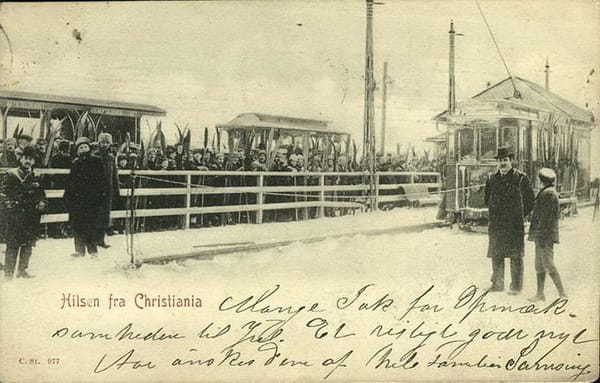 Hilsen fra Christiania
Mange Tak for Opmærk-
somheden til Jul. Et rigtigt godt nyt
Aar ønskes Dere af hele Familien
C. St. 977